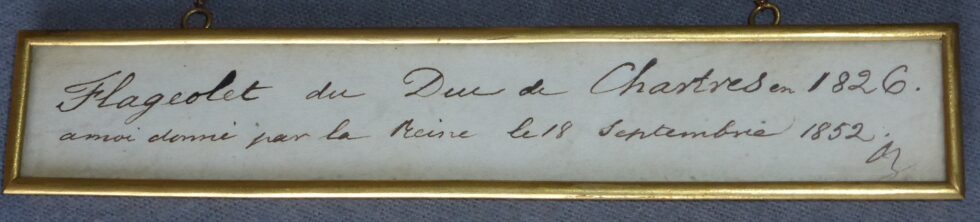 Flageolet du Duc de Chartres en 1826.
a moi donné par la Reine le 18 Septembre 1852.